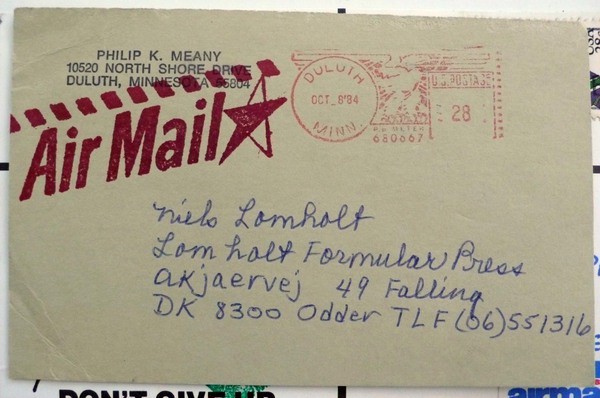 PHILIP K. MEANY
10520 NORTH SHORE DRIVE
DULUTH, MINNESOTA 55804
Air Mail
DULUTH
OCT _8'84
MINN.
U.S. POSTAGE
28
P.B. METER
680667
Niels Lomholt
Lomholt Formular Press
akjaervej 49 Falling
DK 8300 Odder TLF (06)551316
DON'T GIVE UP
airma